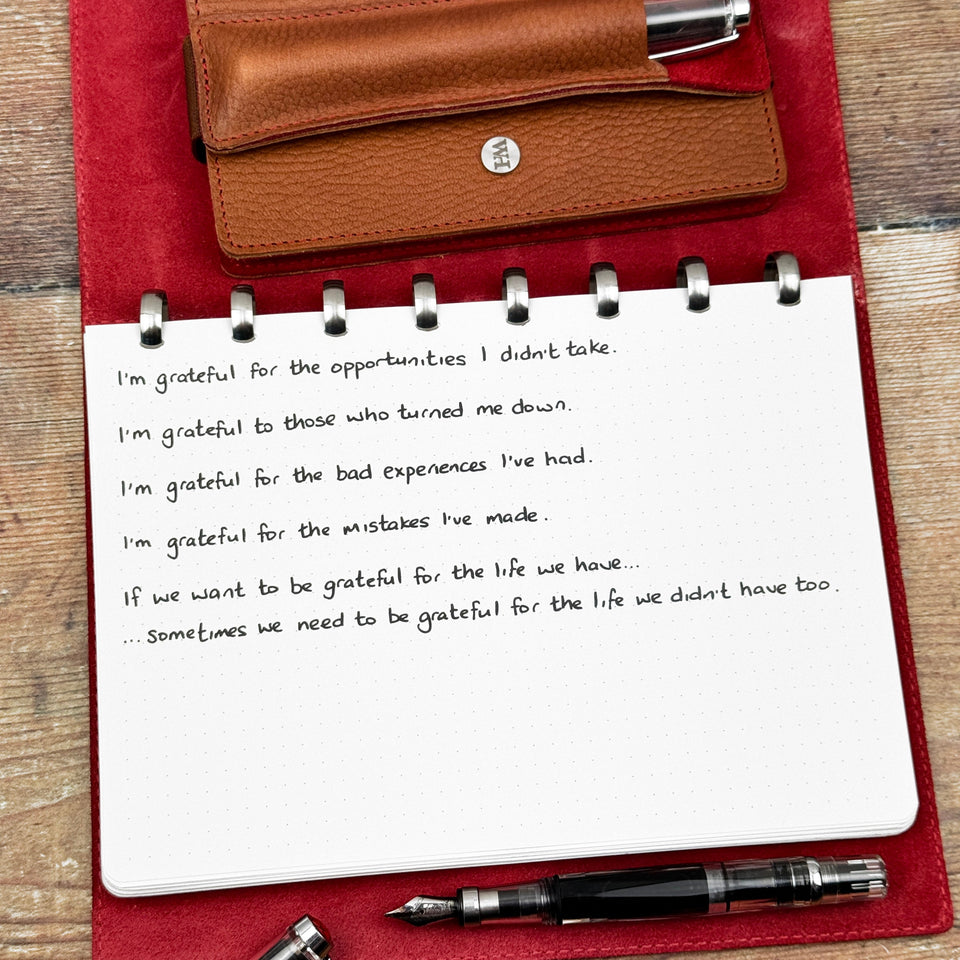 I'm grateful for the opportunities I didn't take.
I'm grateful to those who turned me down.
I'm grateful for the bad experiences I've had.
I'm grateful for the mistakes I've made.
If we want to be grateful for the life we have...
...sometimes we need to be grateful for the life we didn't have too.